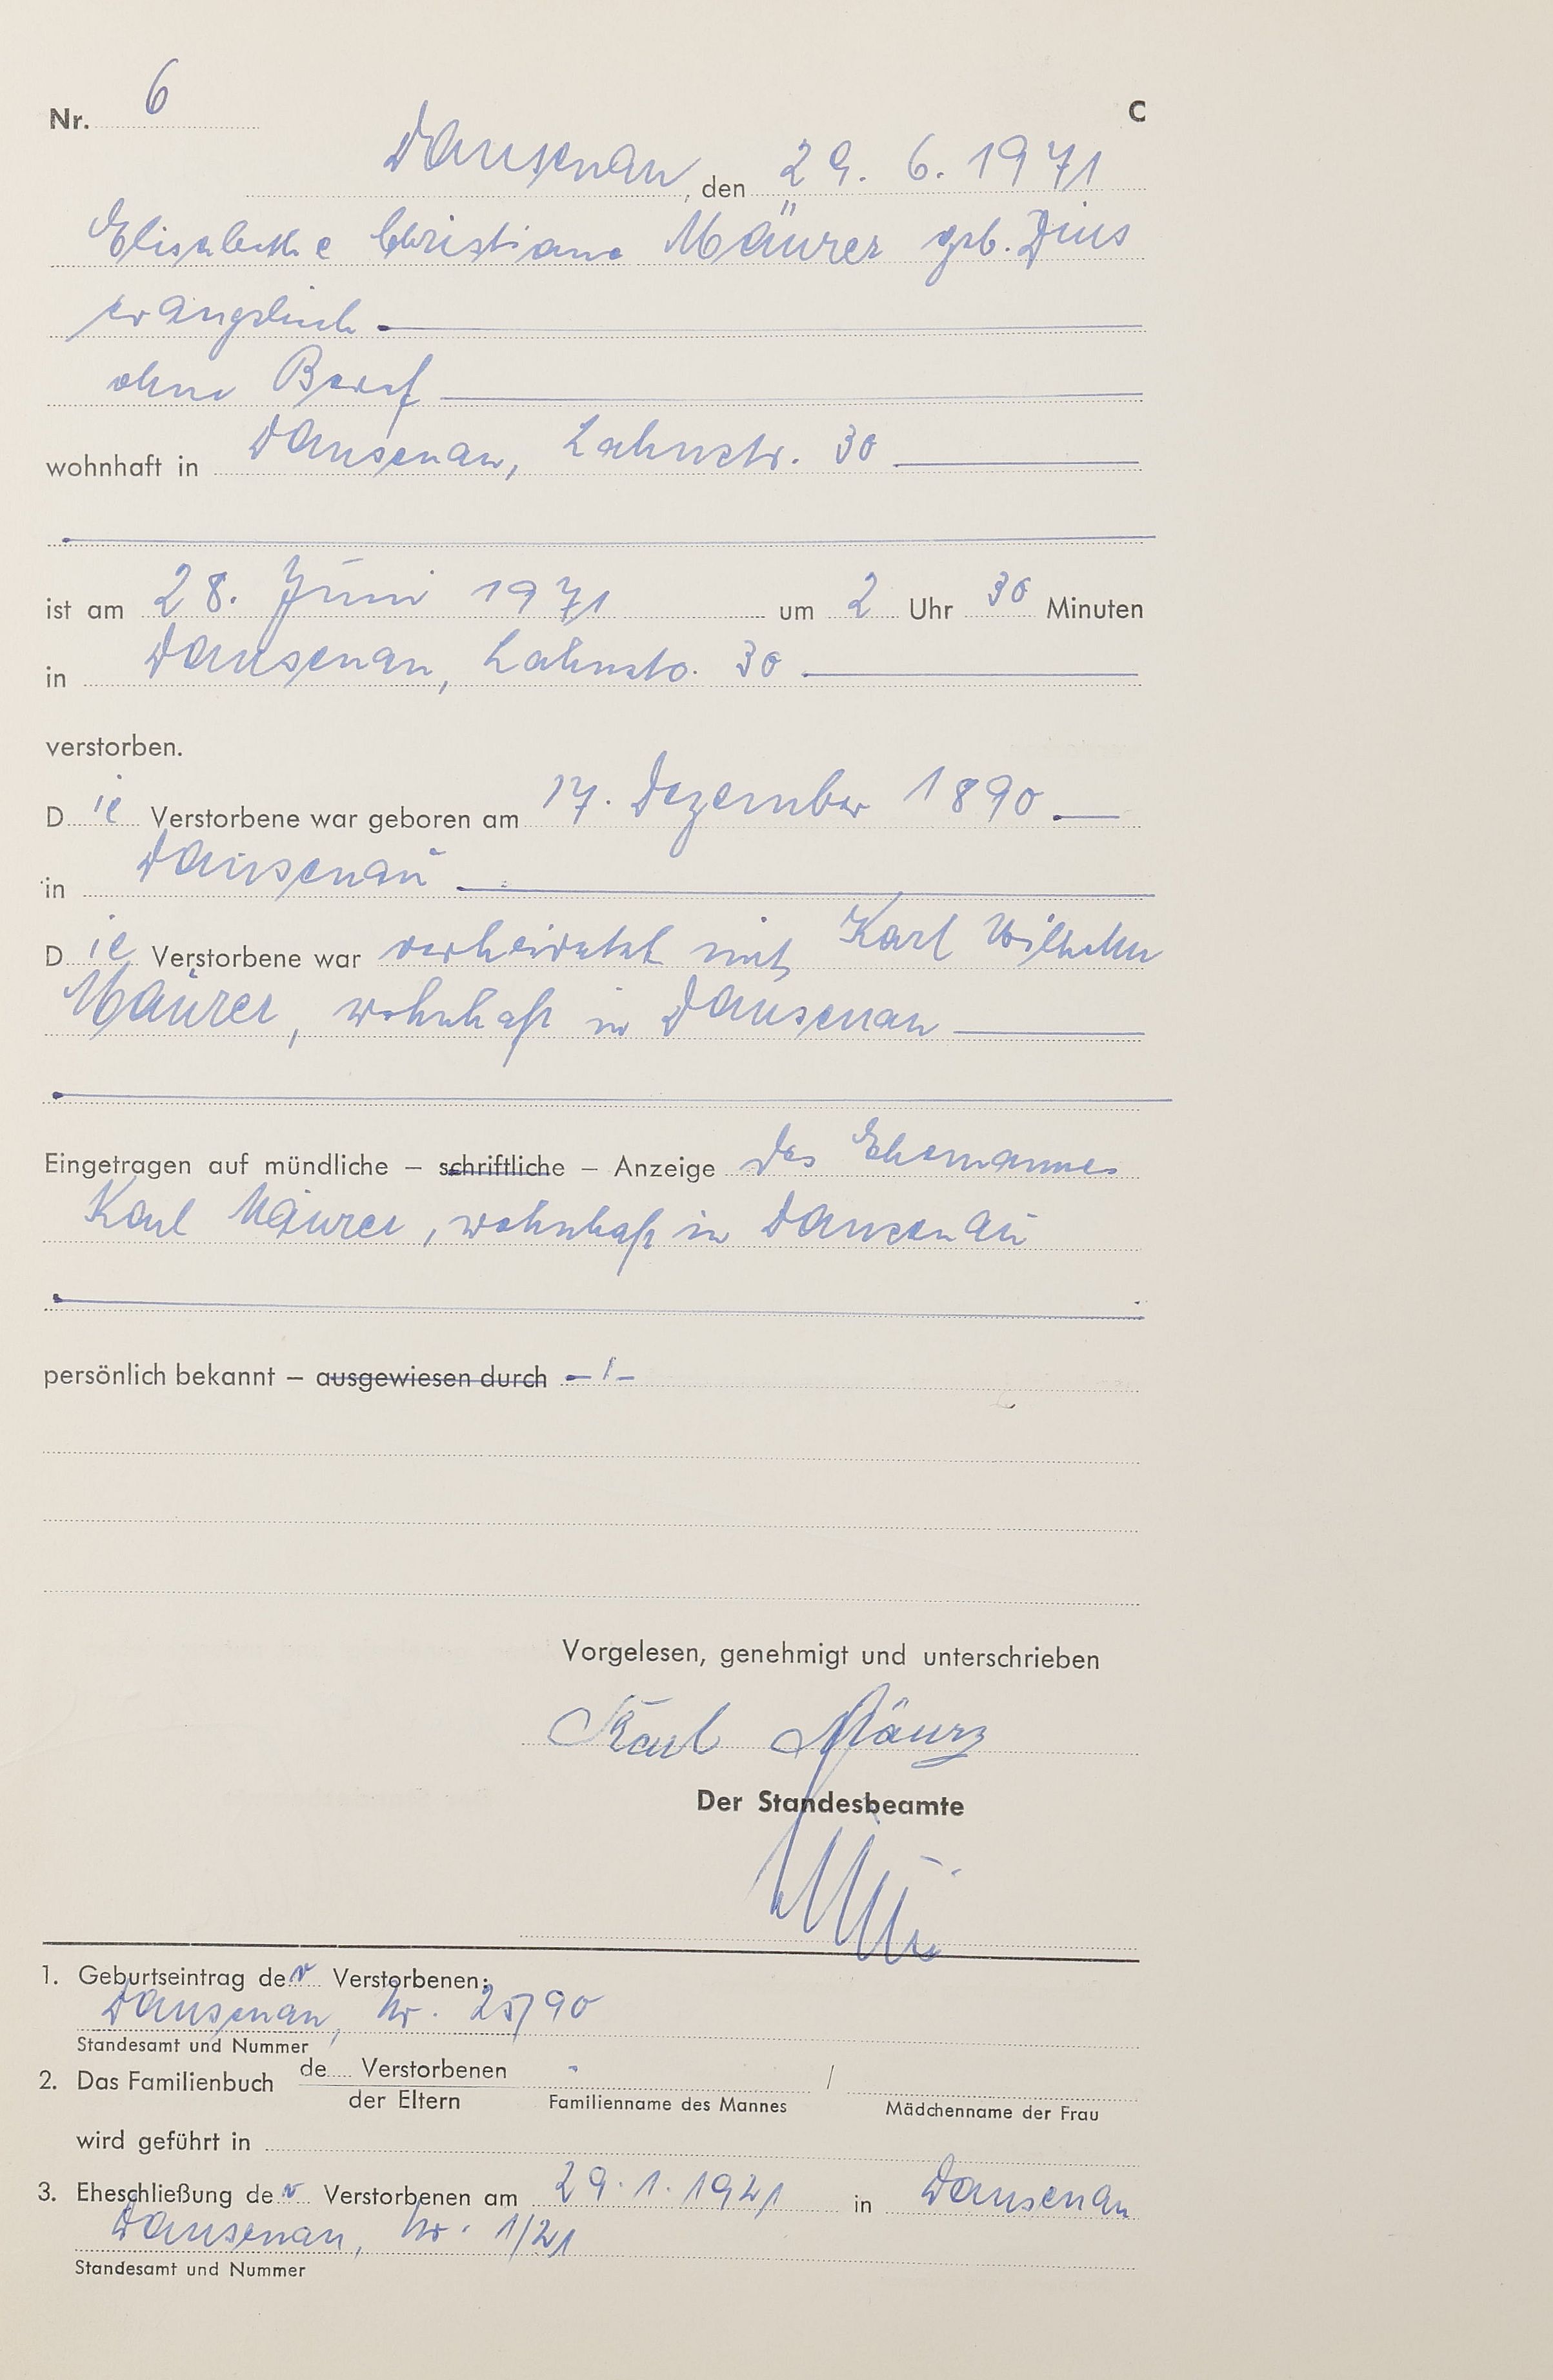 Nr. 6 C
Dausenau, den 29. 6. 1971
Elisabethe Christiane Mäurer geb. Dius
evangelisch
ohne Beruf
wohnhaft in Dausenau, Lahnstr. 30
ist am 28. Juni 1971 um 2 Uhr 30 Minuten
in Dausenau, Lahnstr. 30
verstorben.
Die Verstorbene war geboren am 17. Dezember 1890
in Dausenau
Die Verstorbene war verheiratet mit Karl Wilhelm
Mäurer, wohnhaft in Dausenau
Eingetragen auf mündliche – schriftliche – Anzeige des Ehemannes
Karl Mäurer, wohnhaft in Dausenau
persönlich bekannt – ausgewiesen durch – / –
Vorgelesen, genehmigt und unterschrieben
Karl Mäurer
Der Standesbeamte
1. Geburtseintrag der Verstorbenen:
Dausenau, Nr. 25/90
Standesamt und Nummer
2. Das Familienbuch de Verstorbenen /
der Eltern Familienname des Mannes Mädchenname der Frau
wird geführt in
3. Eheschließung der Verstorbenen am 29. 1. 1921 in Dausenau
Dausenau, Nr. 1/21
Standesamt und Nummer